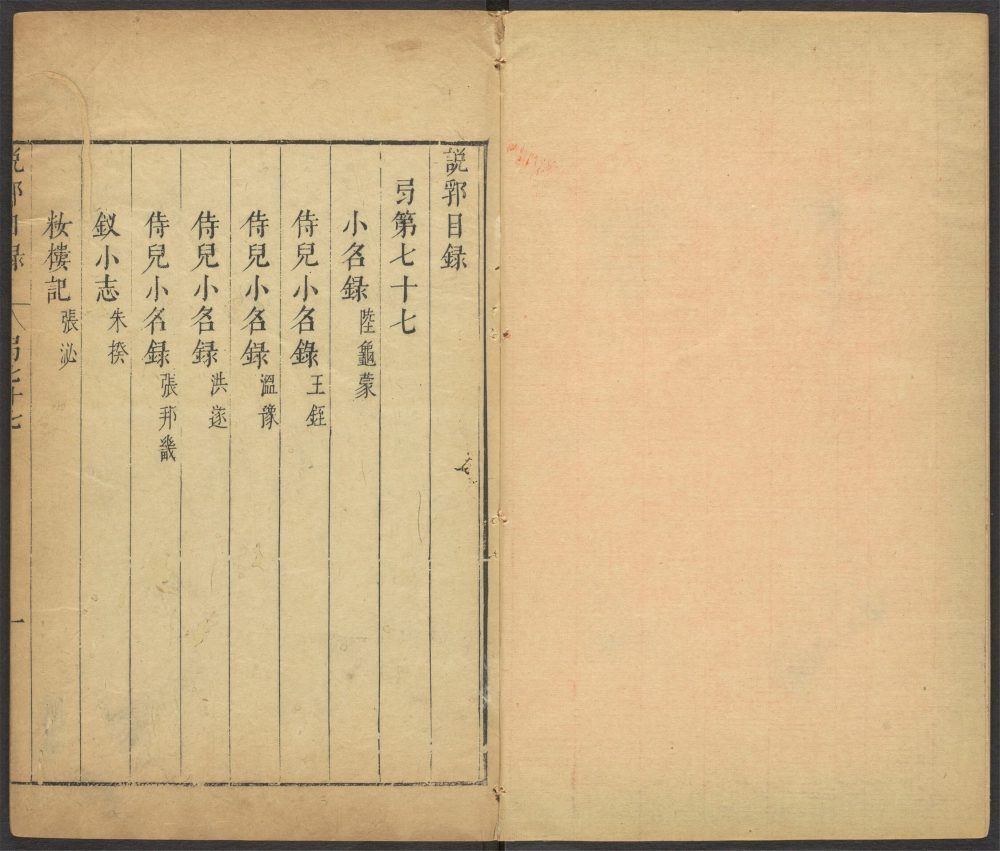 説郛目録
弓第七十七
小名録 陸龜蒙
侍兒小名錄 王銍
侍兒小名录 溫豫
侍兒小名录 洪遂
侍兒小名録 張邦畿
釵小志 朱揆
粧樓記 張泌
説郛目録 弓七十七 一